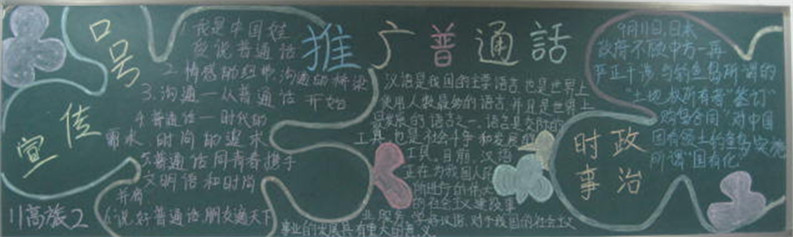 口号
宣传
1.我是中国娃
应说普通话
2.情感的纽带,沟通的桥梁
3.沟通—从普通话
开始
4.普通话—时代的
需求,时尚的追求
5.普通话同青春携手
文明语和时尚
并肩
6.说好普通话,朋友遍天下
11高旅2
推广普通話
汉语是我国的主要语言,也是世界上
使用人数最多的语言,并且是世界上
最发展的语言之一,语言是交际的
工具,也是社会斗争和发展的
工具,目前,汉语
正在为我国人民
所进行的伟大
的社会主义建设事
业服务,学好汉语,对于我国的社会主义
事业的发展具有重大的意义
时事
政治
9月11日,日本
政府不顾中方一再
严正干涉与钓鱼岛所谓的
"土地权所有者"签订"
购售合同"对中国
固有领土钓鱼岛实施
所谓"国有化"